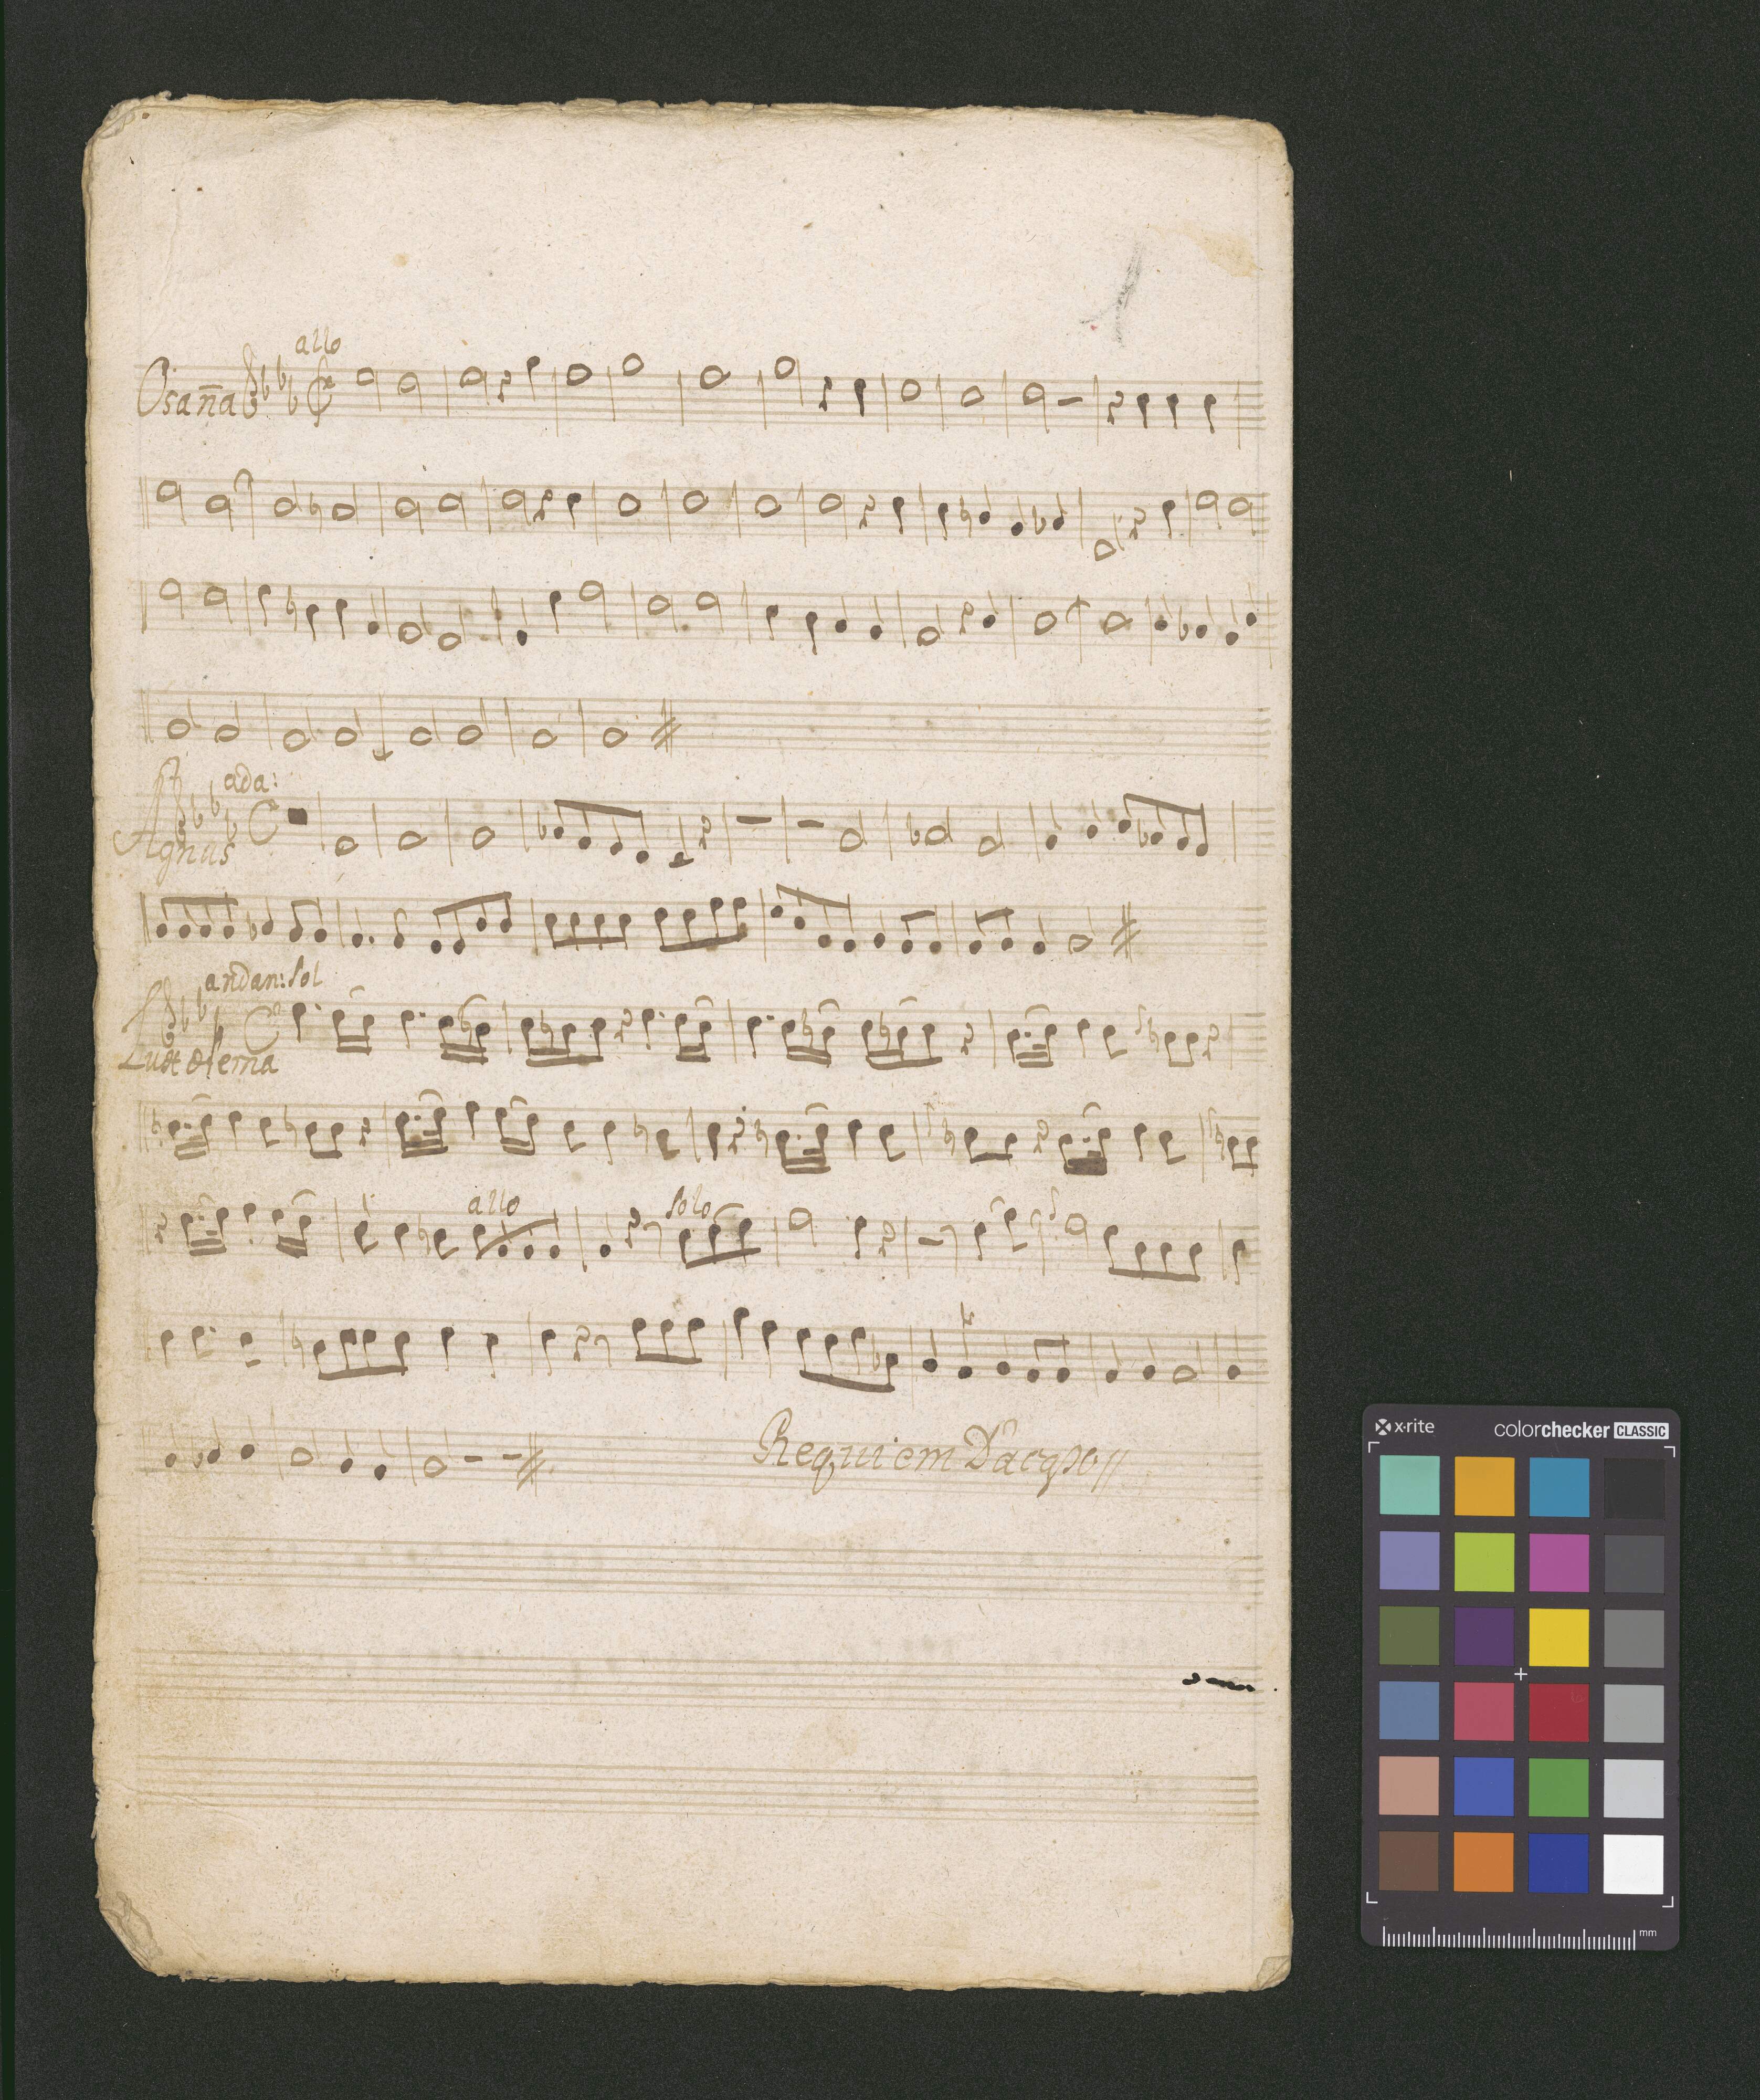 allo
Osana
ada:
Agnus
andan: sol
Lux æterna
allo
solo
Requiem Da capo //
x-rite
colorchecker CLASSIC
mm